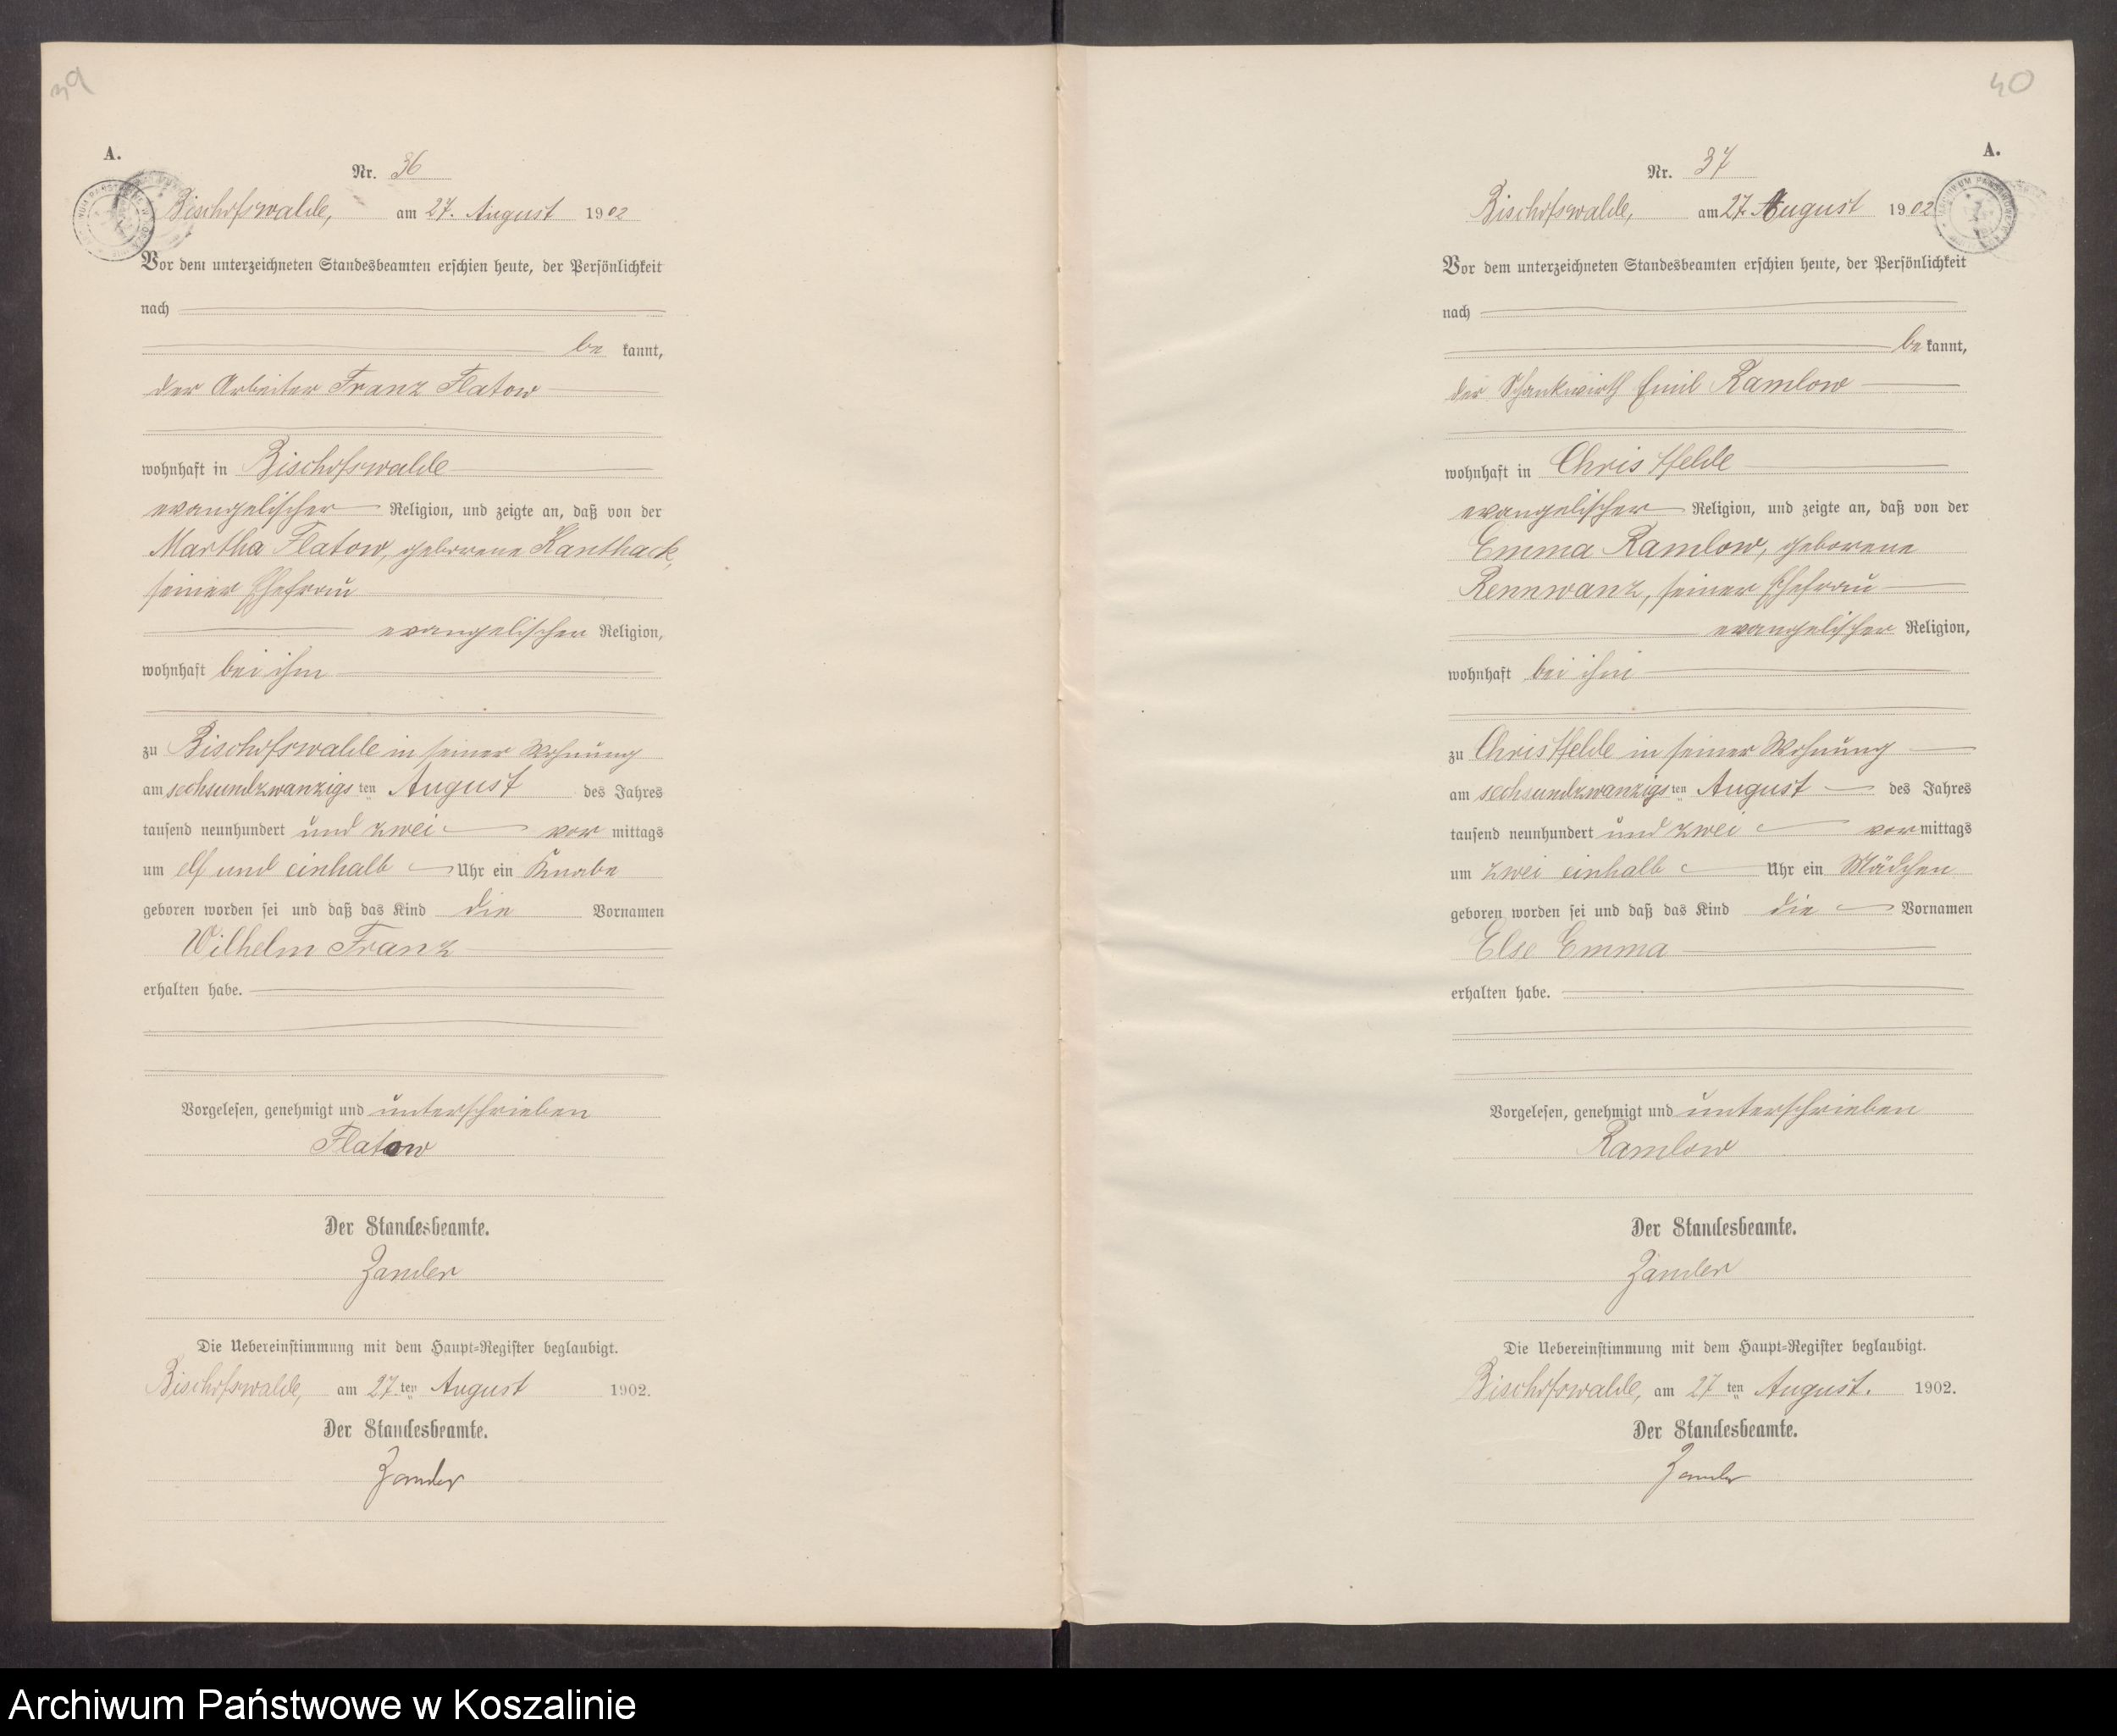 39
A.
Nr. 36
Bischofswalde, am 27. August 1902
Vor dem unterzeichneten Standesbeamten erschien heute, der Persönlichkeit
nach
be kannt,
der Arbeiter Franz Flatow
wohnhaft in Bischofswalde
evangelischer Religion, und zeigte an, daß von der
Martha Flatow, geborene Kanthack,
seiner Ehefrau
evangelischer Religion,
wohnhaft bei ihm
zu Bischofswalde in seiner Wohnung
am sechsundzwanzigs ten August des Jahres
tausend neunhundert und zwei vor mittags
um elf und einhalb Uhr ein Knabe
geboren worden sei und daß das Kind die Vornamen
Wilhelm Franz
erhalten habe.
Vorgelesen, genehmigt und unterschrieben
Flatow
Der Standesbeamte.
Zander
Die Uebereinstimmung mit dem Haupt=Register beglaubigt.
Bischofswalde, am 27. ten August 1902.
Der Standesbeamte.
Zander
40
A.
Nr. 37
Bischofswalde, am 27. August 1902
Vor dem unterzeichneten Standesbeamten erschien heute, der Persönlichkeit
nach
be kannt,
der Schankwirth Emil Ramlow
wohnhaft in Christfelde
evangelischer Religion, und zeigte an, daß von der
Emma Ramlow, geborene
Rennwanz, seiner Ehefrau
evangelischer Religion,
wohnhaft bei ihm
zu Christfelde in seiner Wohnung
am sechsundzwanzigs ten August des Jahres
tausend neunhundert und zwei vor mittags
um zwei einhalb Uhr ein Mädchen
geboren worden sei und daß das Kind die Vornamen
Else Emma
erhalten habe.
Vorgelesen, genehmigt und unterschrieben
Ramlow
Der Standesbeamte.
Zander
Die Uebereinstimmung mit dem Haupt=Register beglaubigt.
Bischofswalde, am 27 ten August. 1902.
Der Standesbeamte.
Zander
Archiwum Państwowe w Koszalinie